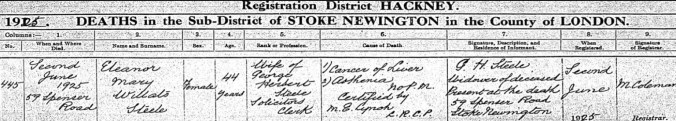 Registration District HACKNEY.
1925. DEATHS in the Sub-District of STOKE NEWINGTON in the County of LONDON.
Columns:— 1. 2. 3. 4. 5. 6. 7. 8. 9.
No. When and Where Died. Name and Surname. Sex. Age. Rank or Profession. Cause of Death. Signature, Description, and Residence of Informant. When Registered. Signature of Registrar.
445
Second
June
1925
59 Spenser
Road
Eleanor
Mary
Willats
Steele
Female
44
years
Wife of
George
Herbert
Steele
Solicitors
Clerk
1) Cancer of Liver
2) Asthenia
no P.M.
Certified by
M. E. Lynch
L.R.C.P.
G. H. Steele
Widower of deceased
Present at the death
59 Spenser Road
Stoke Newington
Second
June
1925
M Coleman
Registrar.